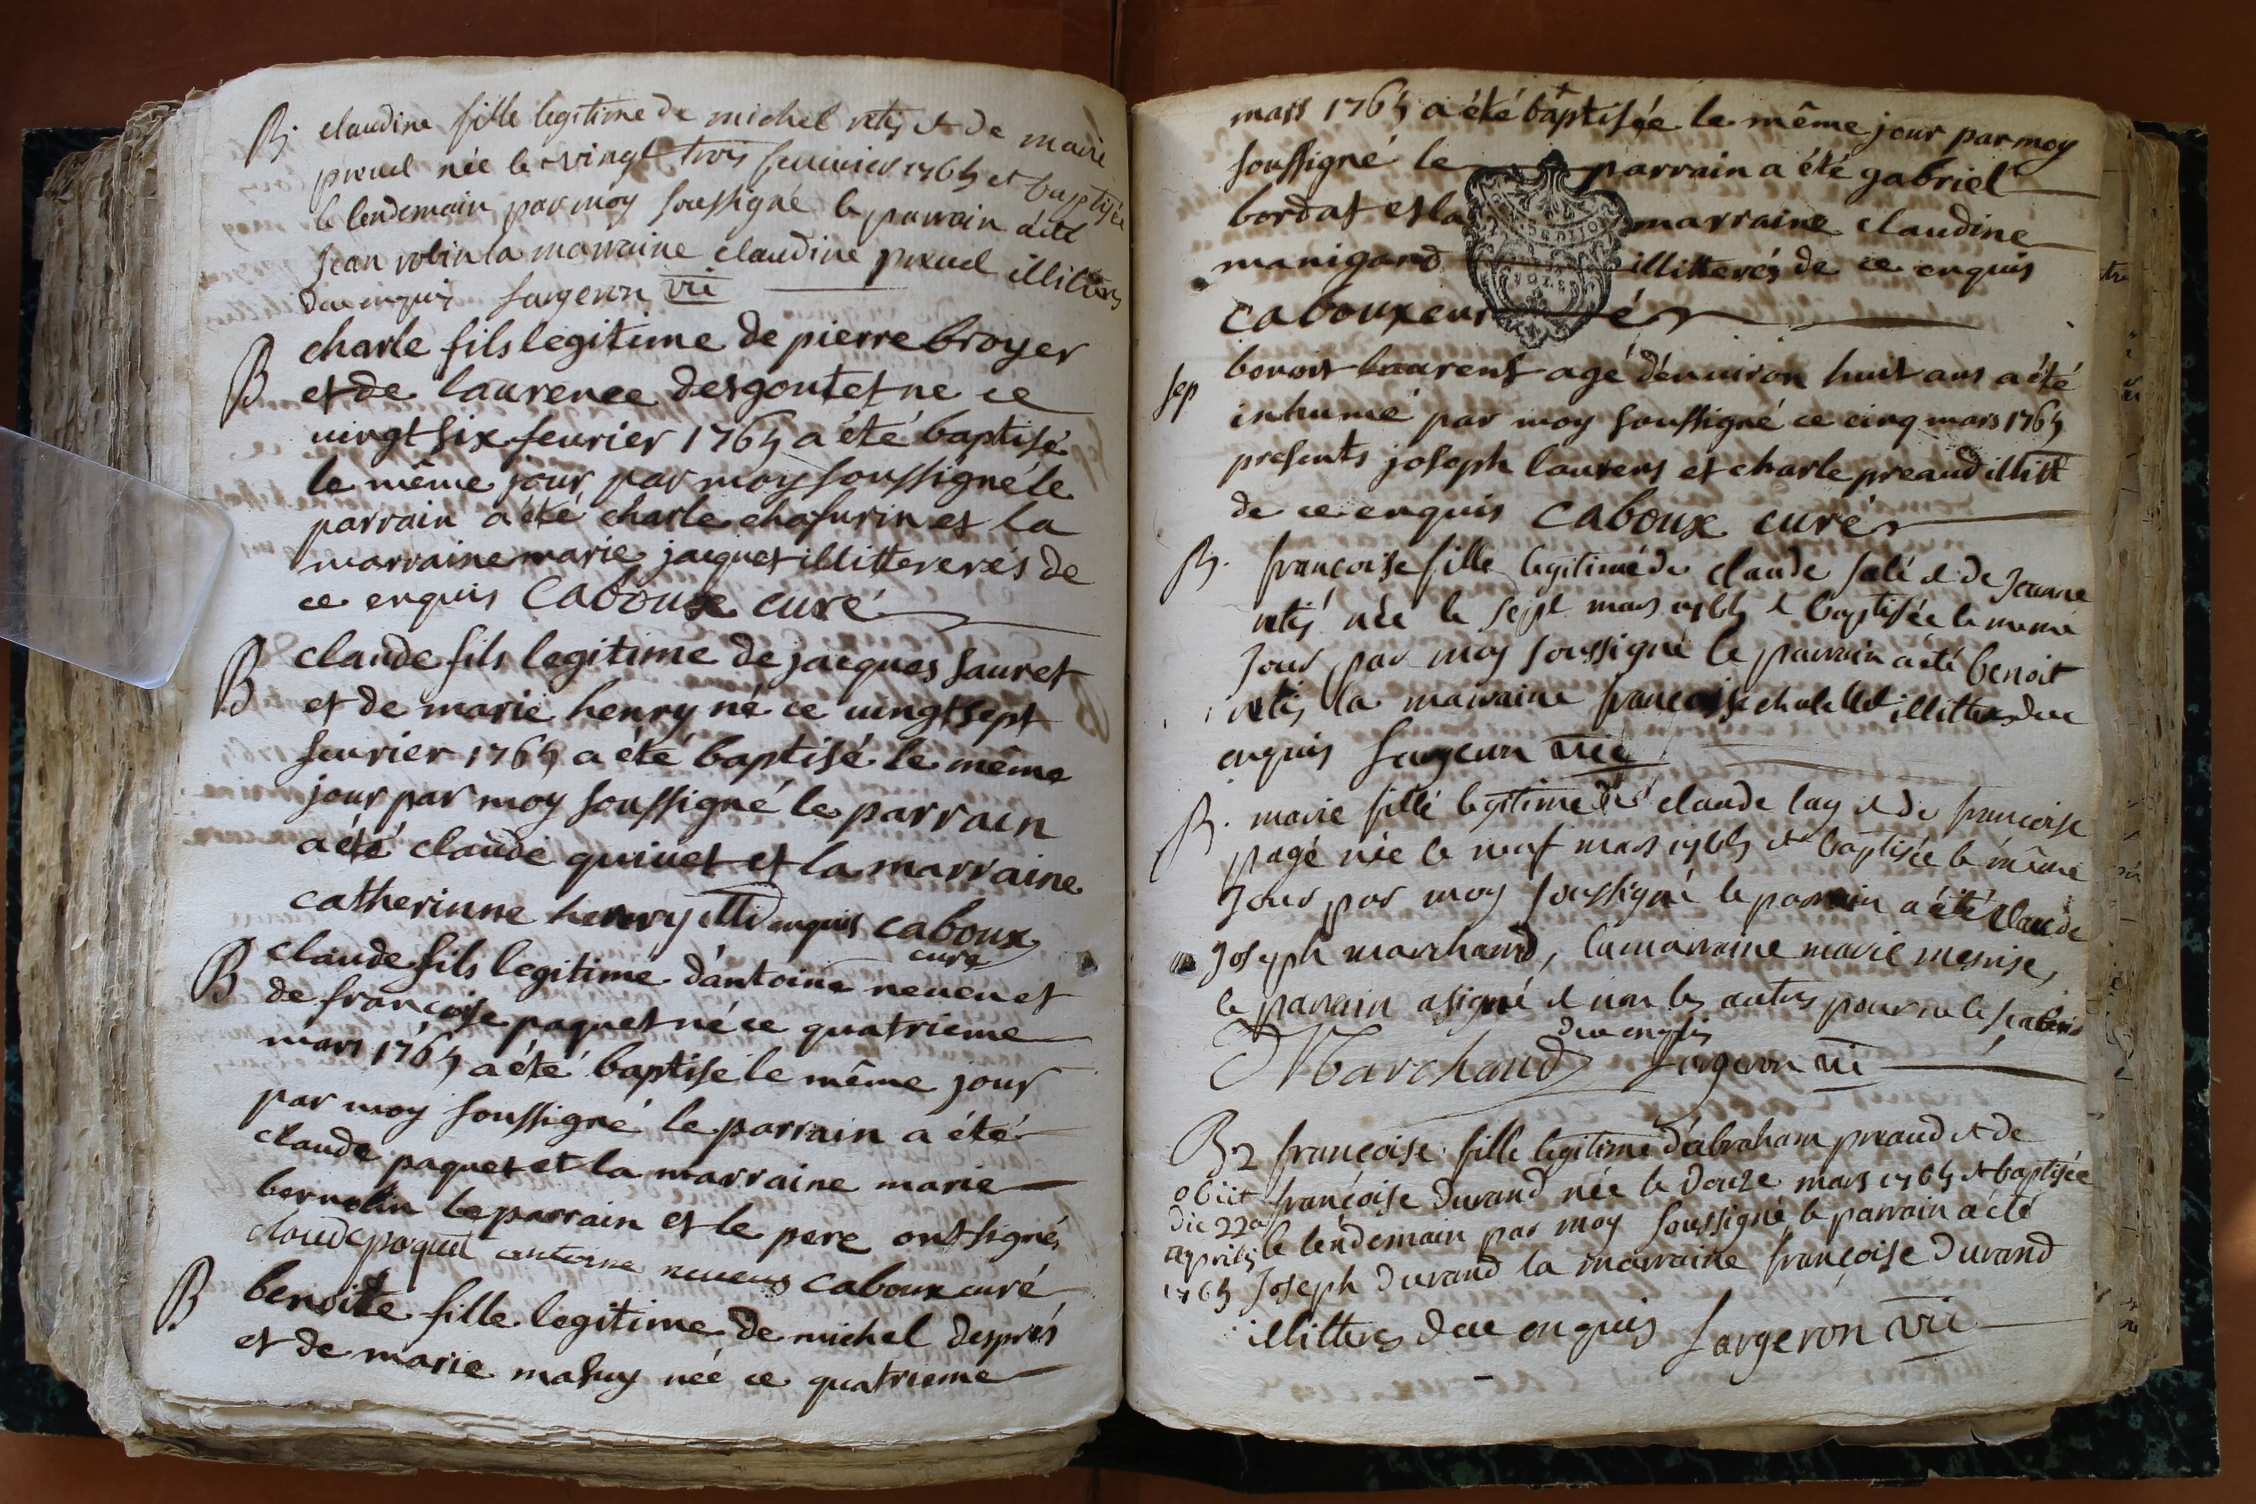 B. claudine fille legitime de michel retis et de marie
preud née le vingt trois feuvrier 1765 et baptisée
le lendemain par moy soussigné le parrain a été
Jean robin la marraine claudine preud illiteres
de ce enquis fargeron vic
B charle fils legitime de pierre broyer
et de laurence desgoutet ne ce
vingt six feurier 1765 a été baptisé
le même jour par moy soussigné le
parrain a été charle chafurin et la
marraine marie jacquet illitterés de
ce enquis Caboux curé
B claude fils legitime de jacques sauret
et de marie henry né ce uingt sept
feurier 1765 a été baptisé le même
jour par moy soussigné le parrain
a été claude quiuet et la marraine
catherinne henry illi enquis caboux
curé
B claude fils legitime d'antoine neueu et
de françoise paquet né ce quatrieme
mars 1765 a été baptise le même jour
par moy soussigné le parrain a été
claude paquet et la marraine marie
bernolin le parrain et le pere ont signés
claude paquet antoine neueus caboux curé
B benoite fille legitime de michel després
et de marie mahuy née ce quatrieme
mars 1765 a été baptisée le même jour par moy
soussigné le parrain a été gabriel
bordat et la marraine claudine
manigand illitterés de ce enquis
caboux curé
sep benoit laurent agé d'enuiron huit ans a été
inhumé par moy soussigné ce cinq mars 1765
presents joseph laurens et charle preaud illitt
de ce enquis Caboux curé
B. françoise fille legitime de claude salé et de Jeanne
retis née le sept mars 1765 et baptisée le meme
Jour par moy soussigné le parrain a été benoit
retis la marraine françoise chalellet illitteres de ce
enquis fargeron vic
B. marie fille legitime de claude lay et de françoise
pagé née le neuf mars 1765 et baptisée le même
Jour par moy soussigné le parrain a été claude
Joseph marchand, la marraine marie mesnise,
le parrain a signé et non les autres pour ne le scavoir
de ce enquis
Marchand fargeron vic
B2 françoise fille legitime d'abraham preaud et de
françoise durand née le douze mars 1765 et baptisée
le lendemain par moy soussigné le parrain a été
Joseph durand la marraine françoise durand
illitteres de ce enquis fargeron vic
obiit
die 22a
aprilis
1765